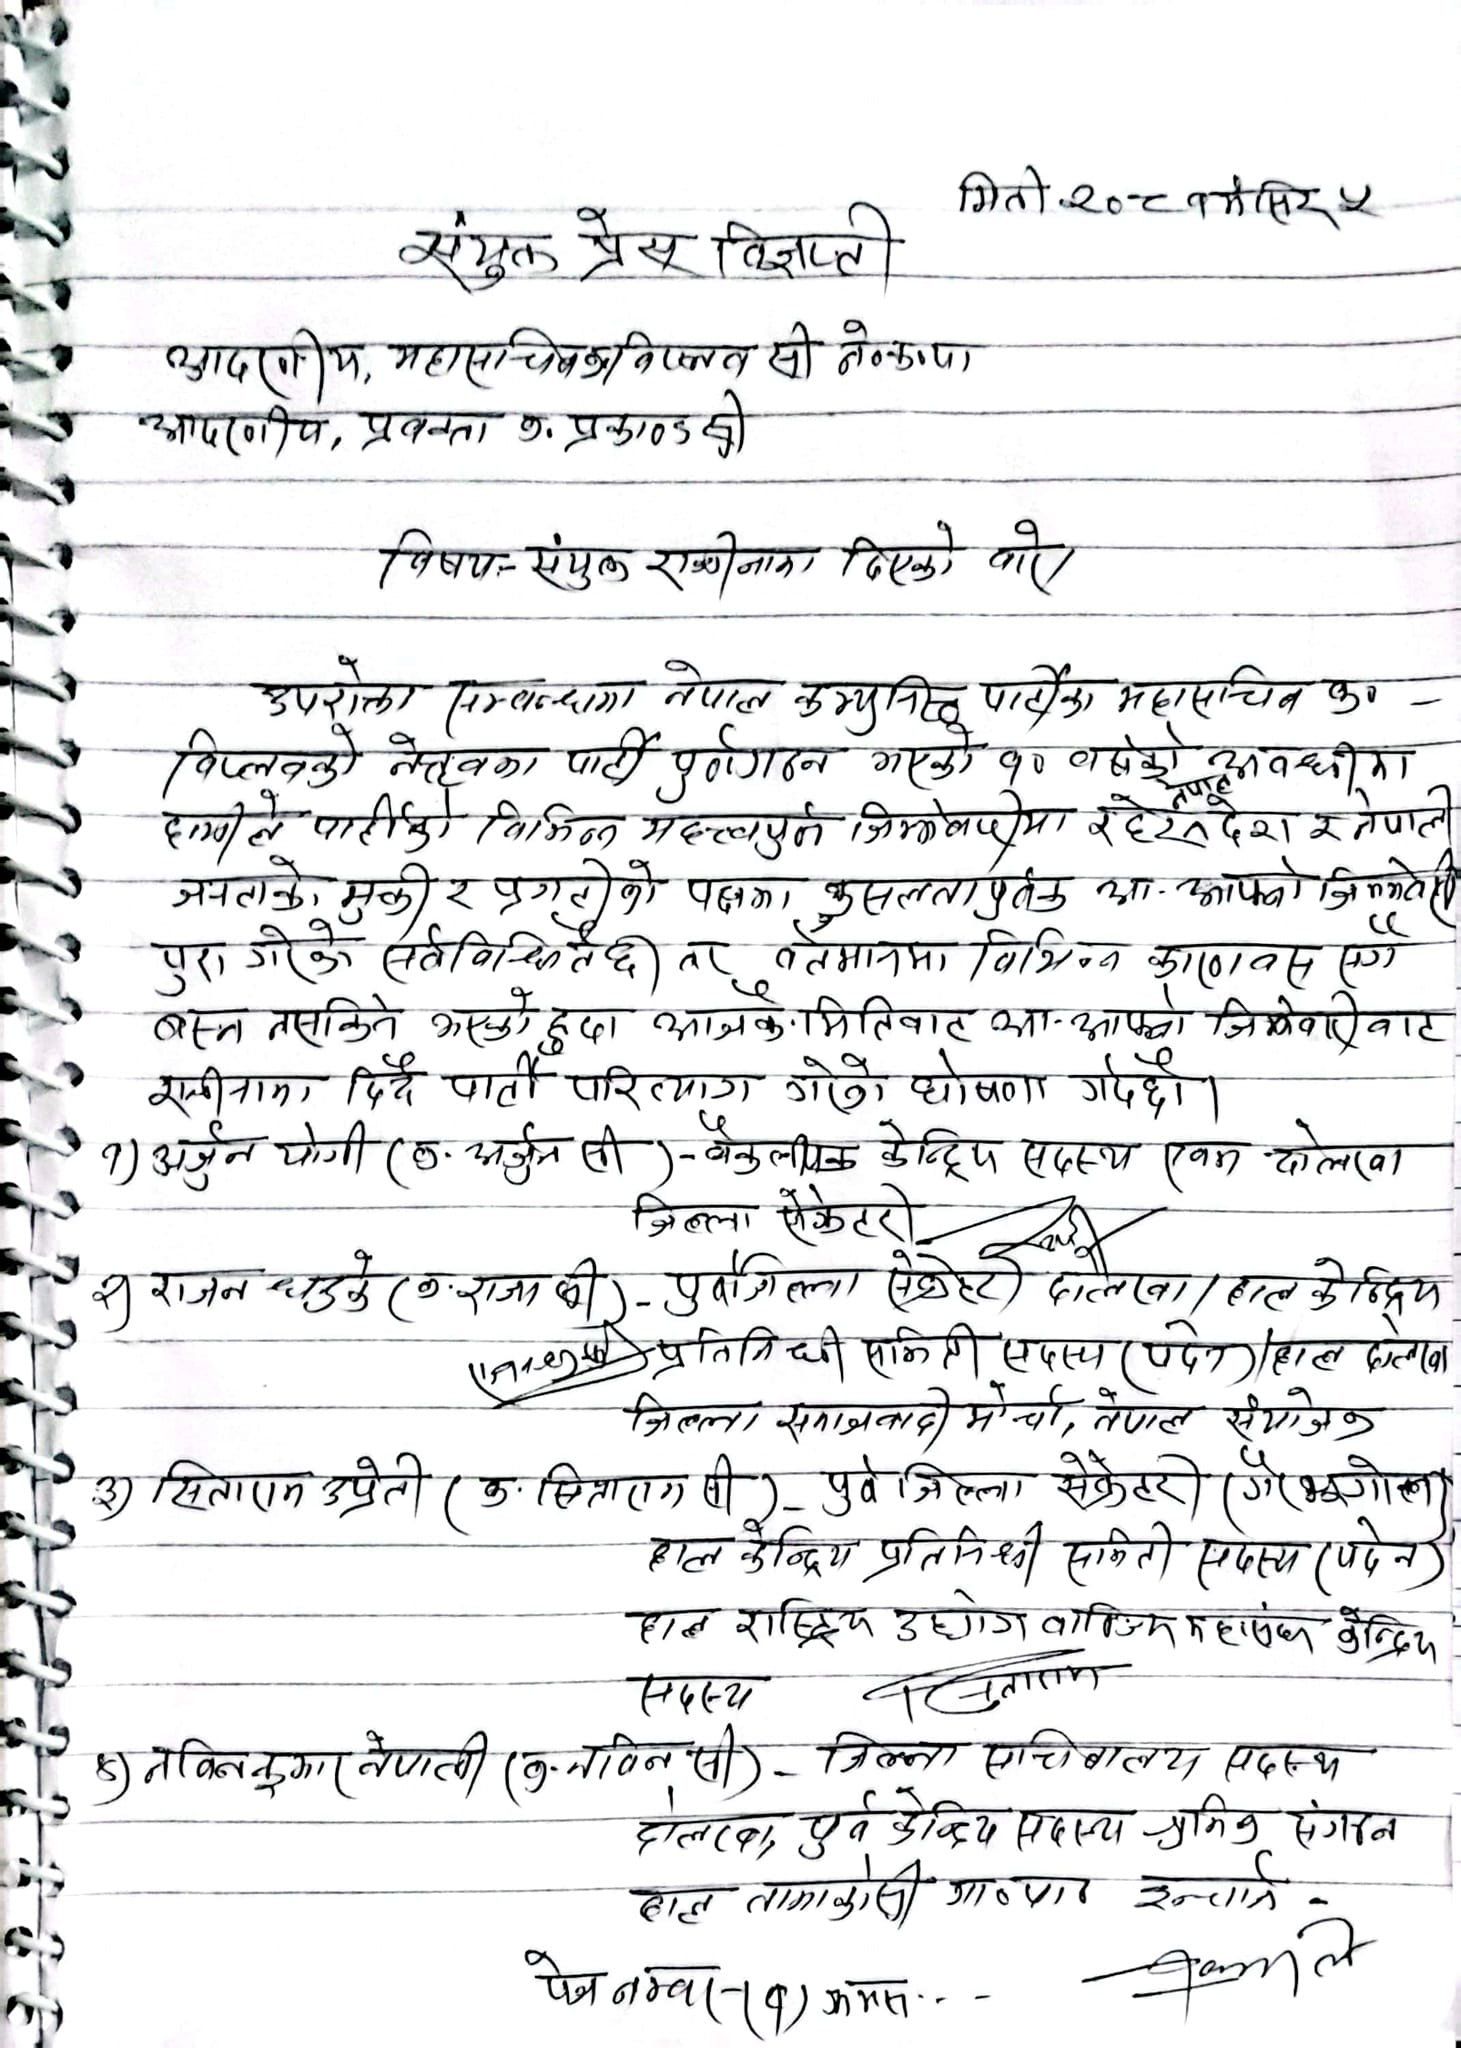 मिती-२०८१ मंसिर ५
संयुक्त प्रेस विज्ञप्ती
आदरणीय, महासचिव क. विप्लव ली ने०क०पा
आदरणीय, प्रवक्ता क. प्रकाण्ड ली
विषय:- संयुक्त राजीनामा दिएको बारे।
उपरोक्त सम्बन्धमा नेपाल कम्युनिस्ट पार्टीका महासचिव क० -
विप्लवको नेतृत्वमा पार्टी पुर्नगठन भएको १० वर्षको अवधीमा
हामीले पार्टीको विभिन्न महत्त्वपुर्ण जिम्मेवारीमा रहेर नेपाल देश र नेपाली
जनताको मुक्ती र प्रगतीको पक्षमा कुसलतापुर्वक आ-आफ्नो जिम्मेवारी
पुरा गरेको सर्वविदितै छ तर वर्तमानमा विभिन्न कारणवस सगै
बस्न नसकिने भएको हुदा आजकै मितिबाट आ-आफ्नो जिम्मेवारीबाट
राजीनामा दिदै पार्टी परित्याग गरेको घोषणा गर्दछौं।
१) अर्जुन योगी (क. अर्जुन ली) - वैकल्पीक केन्द्रिय सदस्य एवम दोलखा
जिल्ला सेक्रेटरी
२) राजन खड्के (क. राजा ली) - पुर्व जिल्ला सेक्रेटरी दोलखा/हाल केन्द्रिय
प्रतिनिधी समिती सदस्य (पदेन)/हाल दोलखा
जिल्ला समाजवादी मोर्चा, नेपाल संयोजक
३) सिताराम उप्रेती (क. सिताराम ली) - पुर्व जिल्ला सेक्रेटरी (गैरभूगोल)
हाल केन्द्रिय प्रतिनिधी समिती सदस्य (पदेन)
हाल राष्ट्रिय उद्योग वाणिज्य महासंघ केन्द्रिय
सदस्य सिताराम
४) नविनकुमार नेपाली (क. नविन ली) - जिल्ला सचिवालय सदस्य
दोलखा, पुर्व केन्द्रिय सदस्य श्रमिक संगठन
हाल तामाकोसी गा०पा० इन्चार्ज -
पेज नम्बर-(१) क्रमस...-